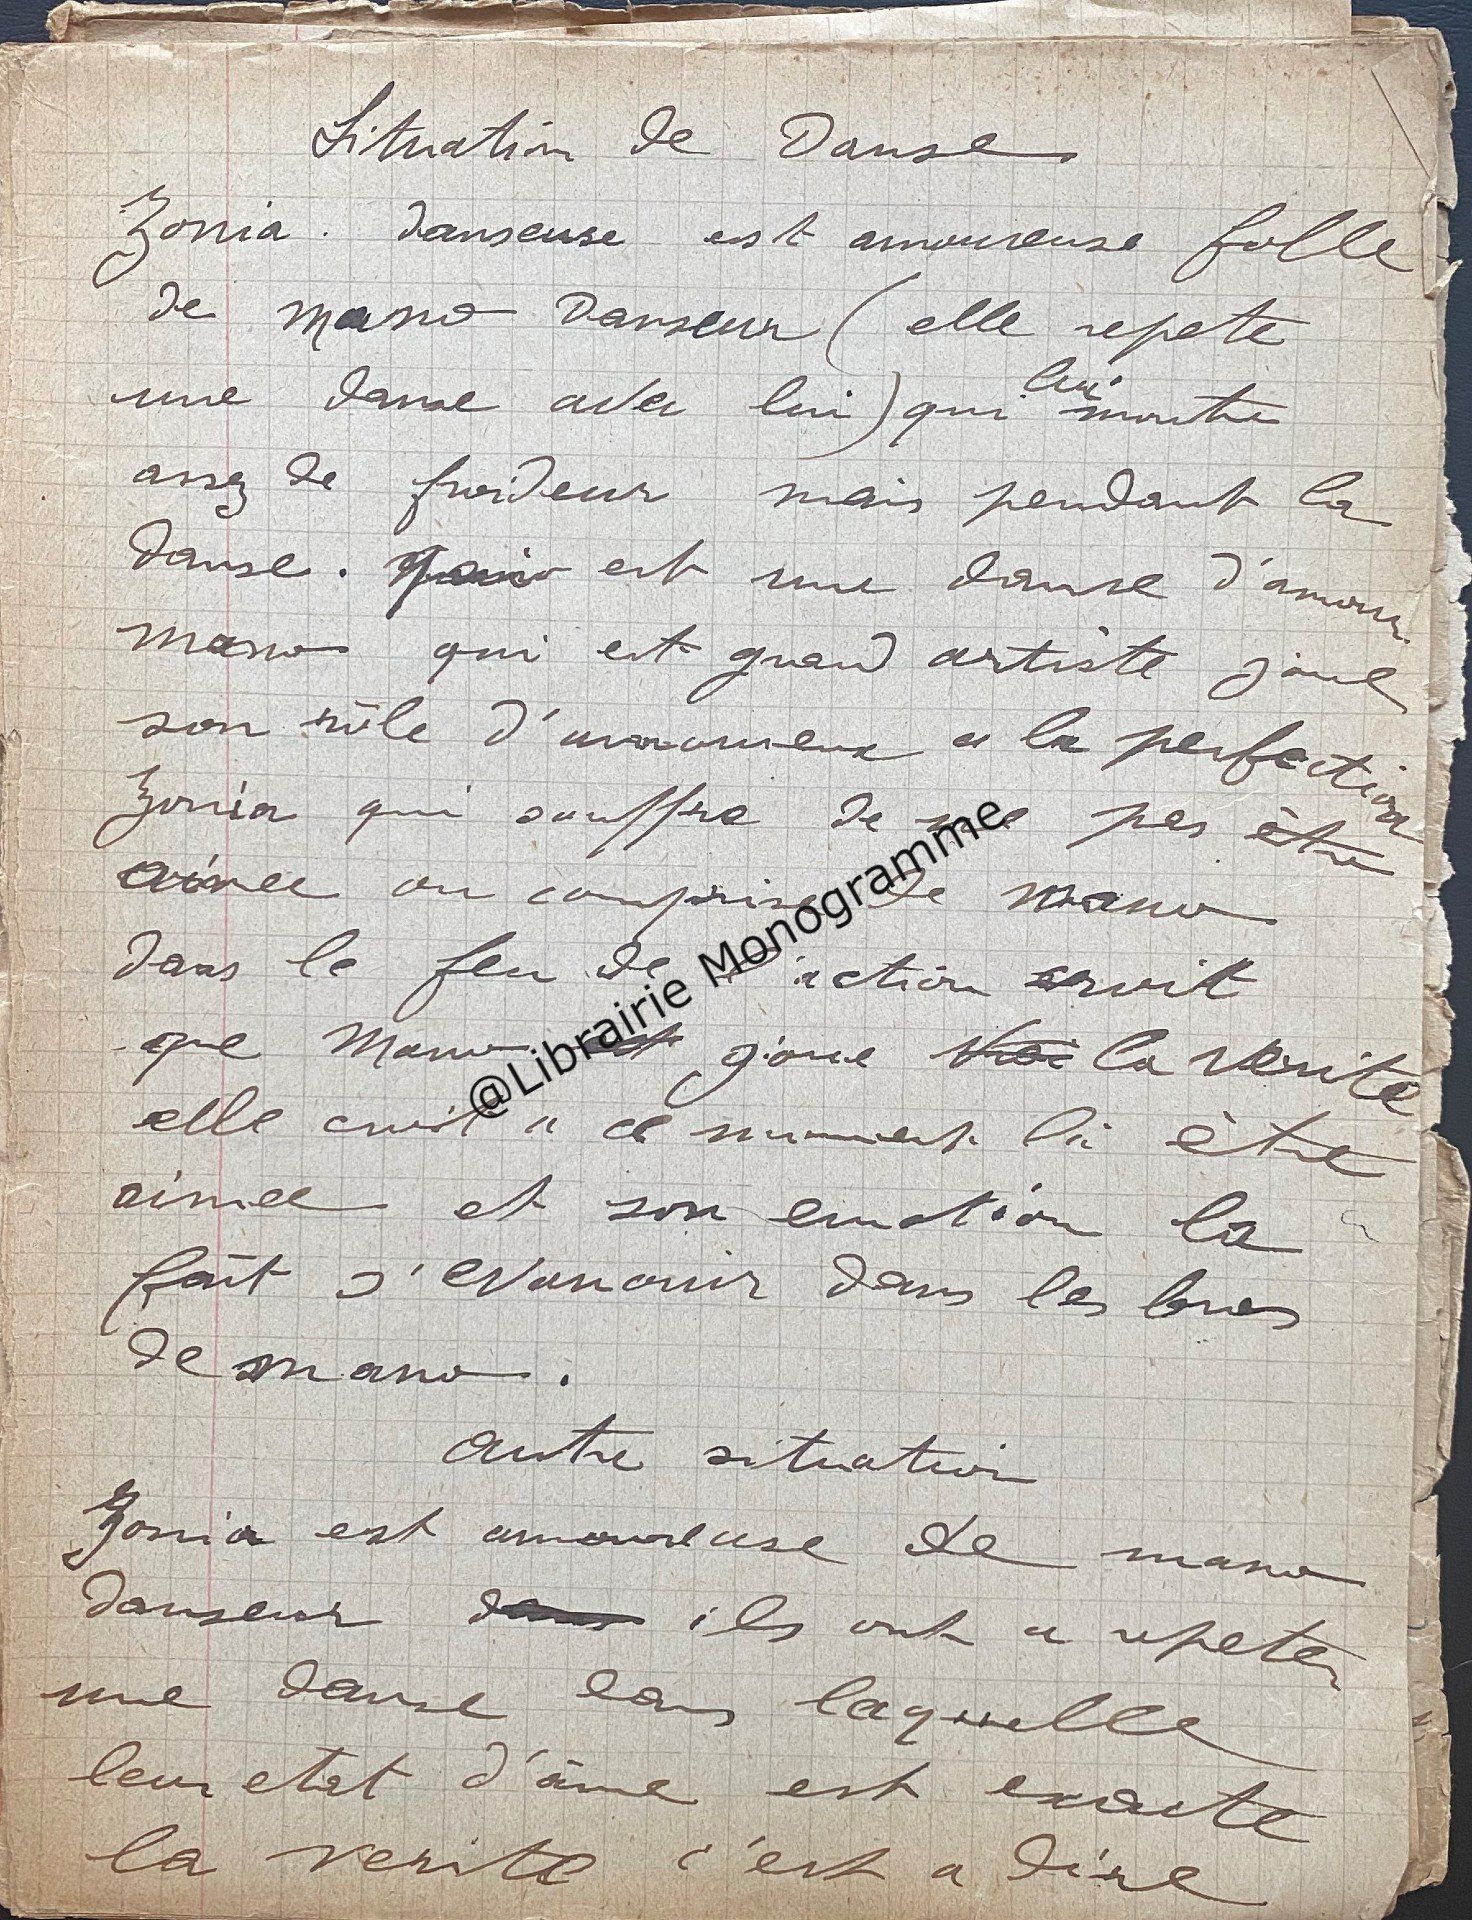 Situation de Danse
Zonia. danseuse est amoureuse folle
de mano Danseur (elle repete
une danse avec lui) qui lui montre
assez de froideur mais pendant la
danse. qui est une danse d'amour.
mano qui est grand artiste joue
son rôle d'amoureux a la perfection
Zonia qui souffre de ne pas être
aimee ou comprise de mano
dans le feu de l'action croit
que Mano joue la verite
elle croit a ce moment là être
aimee et son emotion la
fait s'evanouir dans les bras
de mano.
autre situation
Zonia est amoureuse de mano
danseur dans ils ont a repeter
une danse dans laquelle
leur etat d'âme est exacte
la verite c'est a dire
@Librairie Monogramme